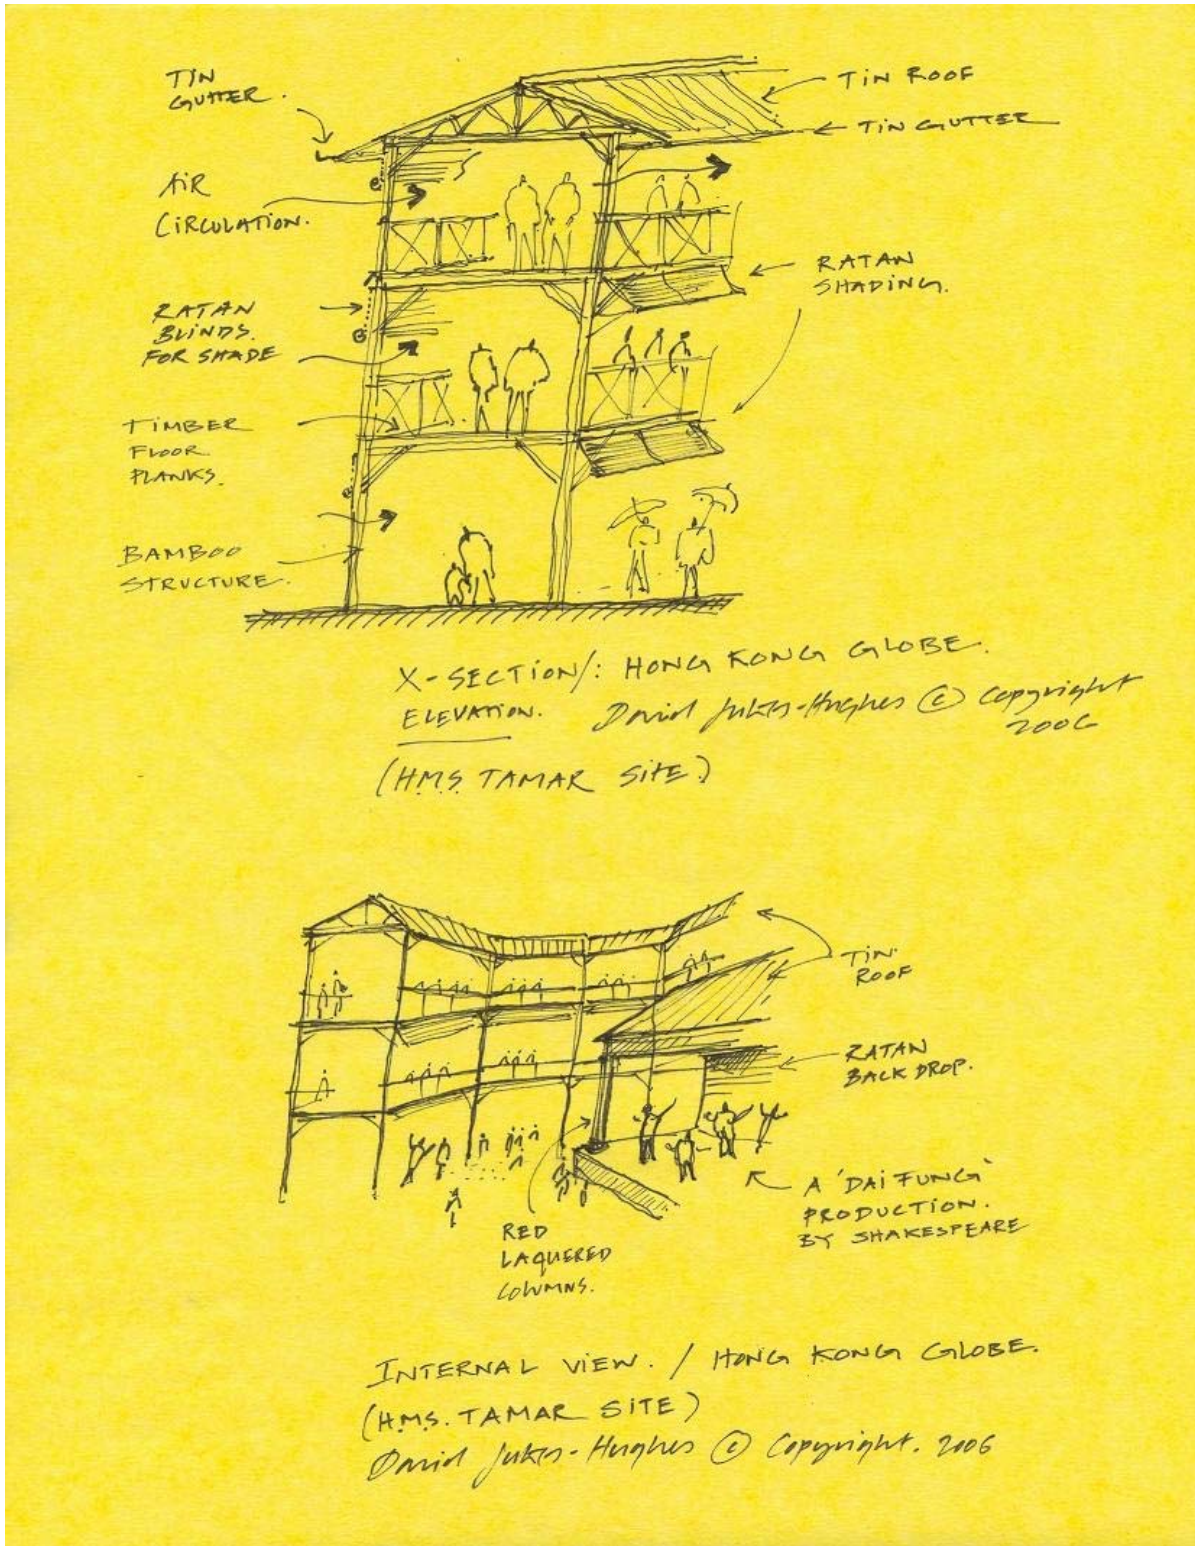 TIN
GUTTER.
TIN ROOF
TIN GUTTER
AIR
CIRCULATION.
RATAN
SHADING.
RATAN
BLINDS.
FOR SHADE
TIMBER
FLOOR
PLANKS.
BAMBOO
STRUCTURE.
X-SECTION/: HONG KONG GLOBE.
ELEVATION.
David Jukes-Hughes © Copyright
2006
(H.M.S. TAMAR SITE.)
TIN
ROOF
RATAN
BACK DROP.
A 'DAI FUNG'
PRODUCTION.
BY SHAKESPEARE
RED
LAQUERED
COLUMNS.
INTERNAL VIEW. / HONG KONG GLOBE.
(H.M.S. TAMAR SITE)
David Jukes-Hughes © Copyright. 2006